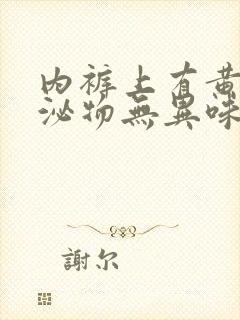 内裤上有黄
泌物無異味
謝尔